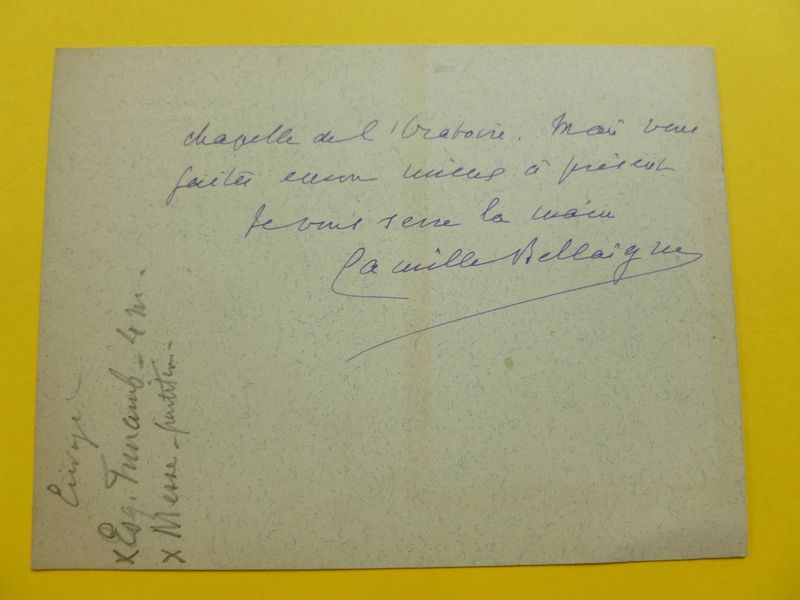 chapelle de l'Oratoire. Mais vous
faites encore mieux à présent
Je vous serre la main
Camille Bellaigue
Envoyé
x Esq. 4 m.
x Messe - partition -